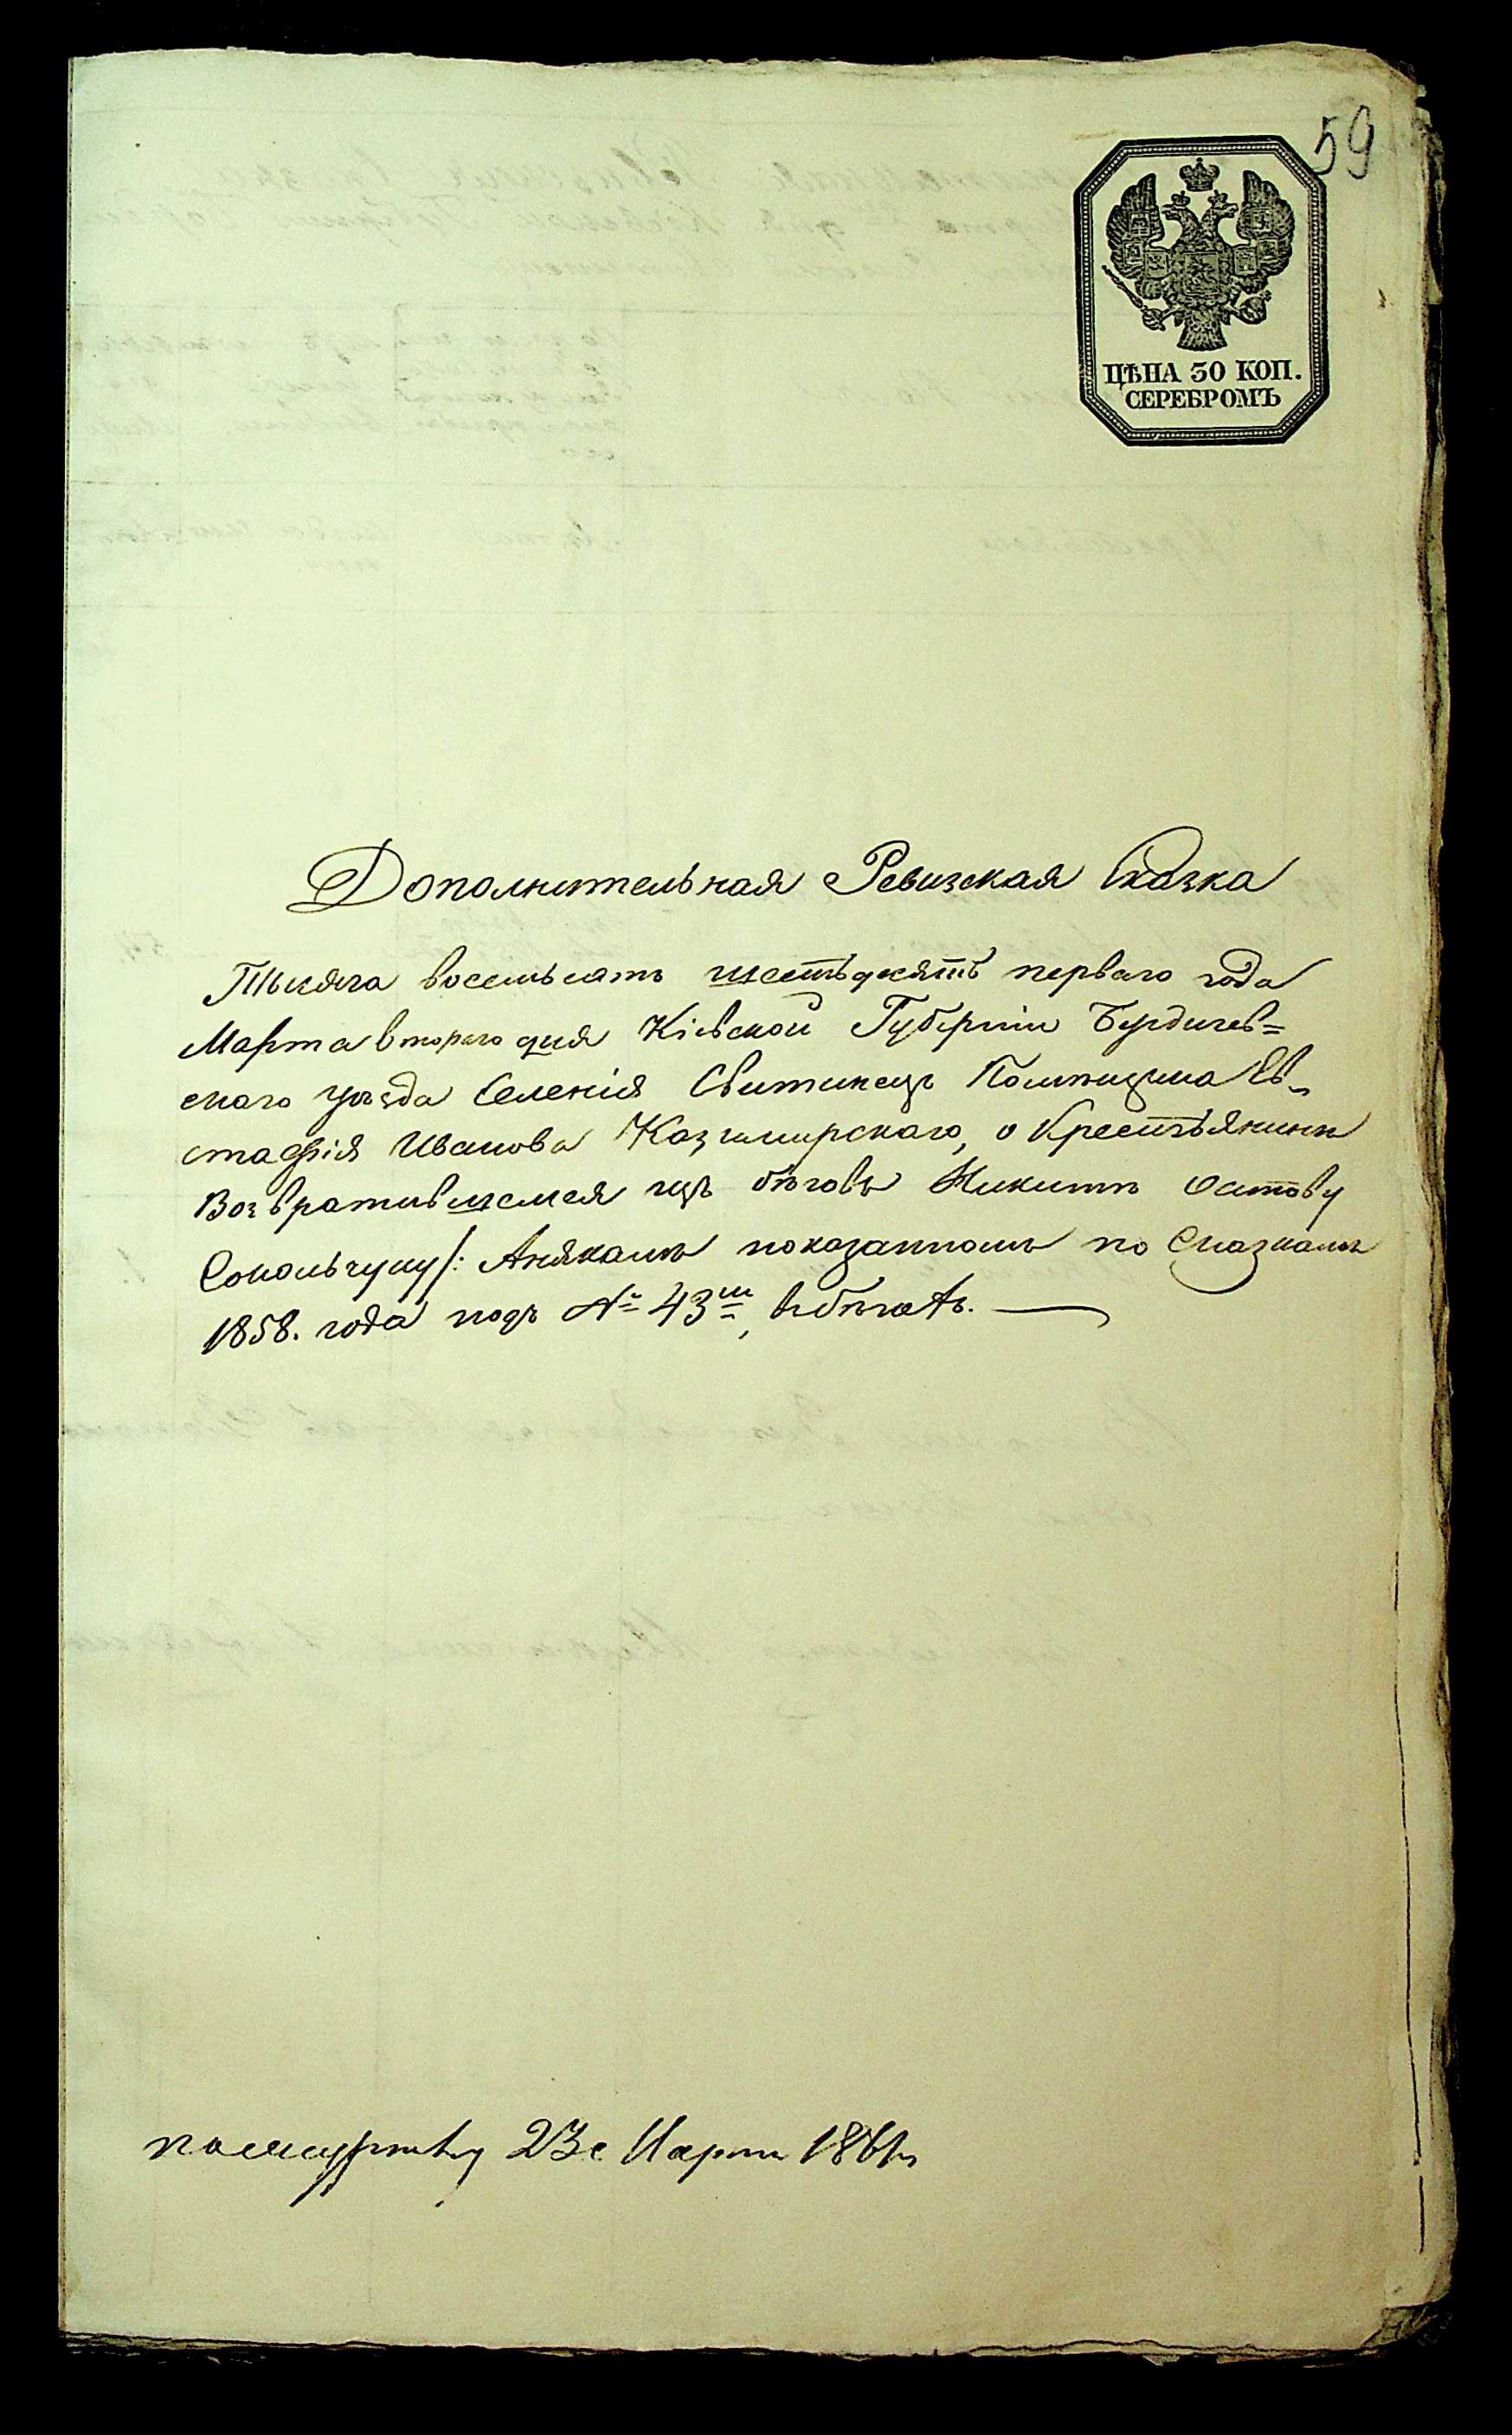 59
ЦѢНА 30 КОП.
СЕРЕБРОМЪ
Дополнительная Ревизская Сказка
Тысяча восемьсотъ шестьдесятъ перваго года
Марта втораго дня Кіевской Губерніи Бердичев=
скаго уѣзда Селенія Свитинецъ Помѣщика Ев-
стафія Иванова Казимирскаго, о Крестьянинѣ
Возвратившемся изъ бѣговъ Никитѣ
показанномъ по Сказкамъ
1858. года подъ № 43ш,
23е Марта 1861